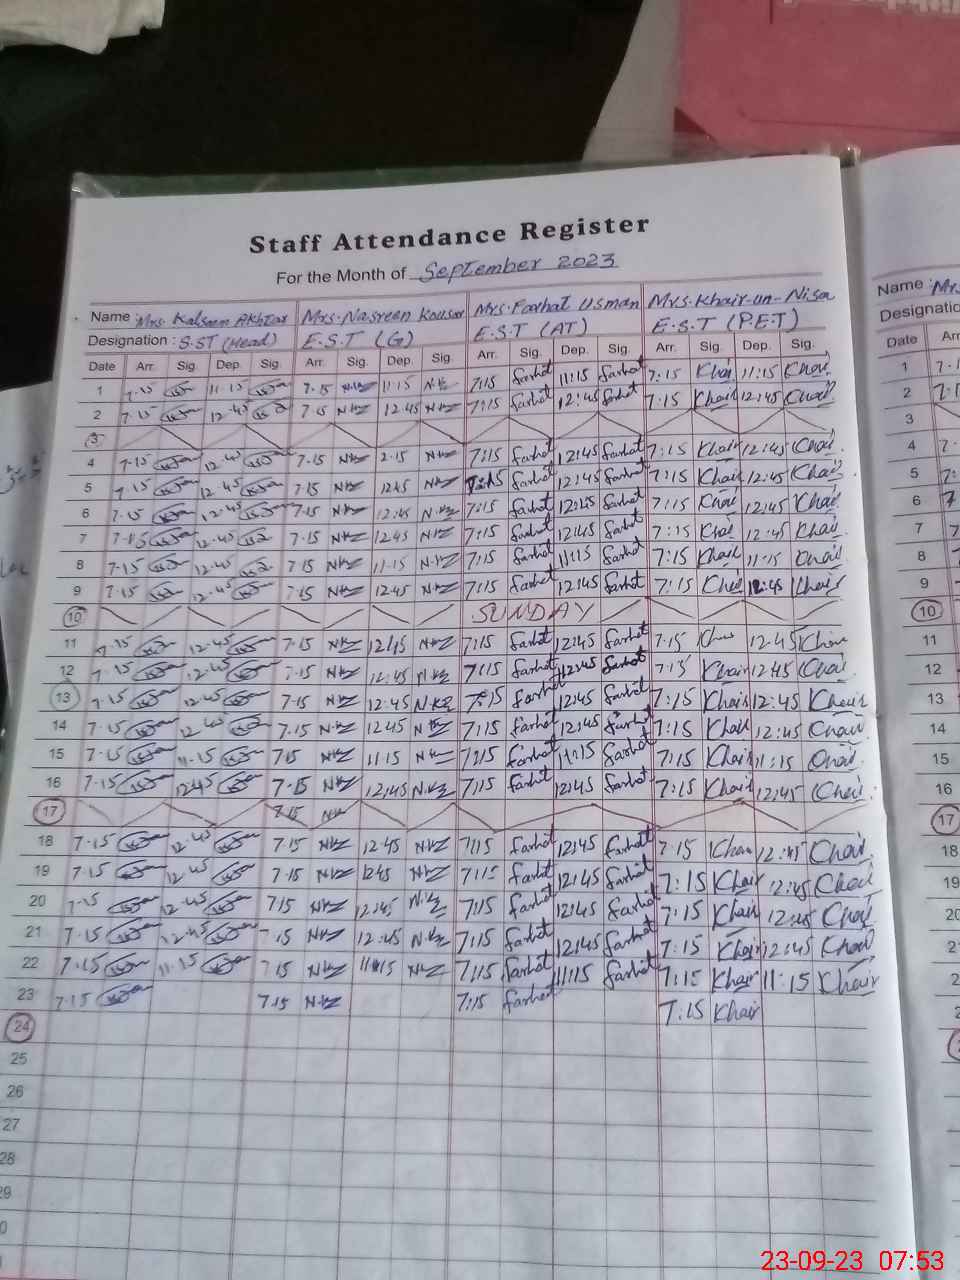 Staff Attendance Register
For the Month of September 2023
Name Mrs. Kalsoom Akhtar Mrs. Nasreen Kousar Mrs. Farhat Usman Mrs. Khair-un-Nisa
Designation : S.ST (Head) E.S.T (G) E.S.T (AT) E.S.T (P.E.T)
Date Arr. Sig. Dep. Sig. Arr. Sig. Dep. Sig. Arr. Sig. Dep. Sig. Arr. Sig. Dep. Sig.
1 7.15 11.15 7.15 N.KZ 11.15 N.KZ 7:15 Farhat 11:15 Farhat 7:15 Khair 11:15 Khair
2 7.15 12.45 7.15 NKZ 12.45 NKZ 7:15 Farhat 12:45 Farhat 7:15 Khair 12:45 Khair
3
4 7.15 12.45 7.15 NKZ 2.15 NKZ 7:15 Farhat 12:45 Farhat 7:15 Khair 12:45 Khair
5 7.15 12.45 7.15 NKZ 12.45 NKZ 7:15 Farhat 12:45 Farhat 7:15 Khair 12:45 Khair
6 7.15 12.45 7.15 NKZ 12.45 N.KZ 7:15 Farhat 12:45 Farhat 7:15 Khair 12:45 Khair
7 7.15 12.45 7.15 NKZ 12.45 NKZ 7:15 Farhat 12:45 Farhat 7:15 Khair 12:45 Khair
8 7.15 12.45 7.15 NKZ 11.15 NKZ 7:15 Farhat 11:15 Farhat 7:15 Khair 11:15 Khair
9 7.15 12.45 7.15 NKZ 12.45 NKZ 7:15 Farhat 12:45 Farhat 7:15 Khair 12:45 Khair
10 SUNDAY
11 7.15 12.45 7.15 NKZ 12.45 NKZ 7:15 Farhat 12:45 Farhat 7:15 Khair 12:45 Khair
12 7.15 12.45 7.15 NKZ 12:45 N.KZ 7:15 Farhat 12:45 Farhat 7:15 Khair 12:45 Khair
13 7.15 12.45 7.15 NKZ 12.45 N.KZ 7:15 Farhat 12:45 Farhat 7:15 Khair 12:45 Khair
14 7.15 12.45 7.15 NKZ 12.45 NKZ 7:15 Farhat 12:45 Farhat 7:15 Khair 12:45 Khair
15 7.15 11.15 7.15 NKZ 11.15 NKZ 7:15 Farhat 11:15 Farhat 7:15 Khair 11:15 Khair
16 7.15 12.45 7.15 NKZ 12:45 N.KZ 7:15 Farhat 12:45 Farhat 7:15 Khair 12:45 Khair
17 7.15 NK
18 7.15 12.45 7.15 NKZ 12.45 NKZ 7:15 Farhat 12:45 Farhat 7:15 Khair 12:45 Khair
19 7.15 12.45 7.15 NKZ 1245 NKZ 7:15 Farhat 12:45 Farhat 7:15 Khair 12:45 Khair
20 7.15 12.45 7.15 NKZ 12.45 N.KZ 7:15 Farhat 12:45 Farhat 7:15 Khair 12:45 Khair
21 7.15 12.45 7.15 NKZ 12:45 N.KZ 7:15 Farhat 12:45 Farhat 7:15 Khair 12:45 Khair
22 7.15 11.15 7.15 NKZ 11.15 NKZ 7:15 Farhat 11:15 Farhat 7:15 Khair 11:15 Khair
23 7.15 7.15 NKZ 7:15 Farhat 7:15 Khair
24
25
26
27
28
Name Mrs.
Designatio
Date Arr
1
2
3
4
5
6
7
8
9
10
11
12
13
14
15
16
17
18
19
20
23-09-23 07:53